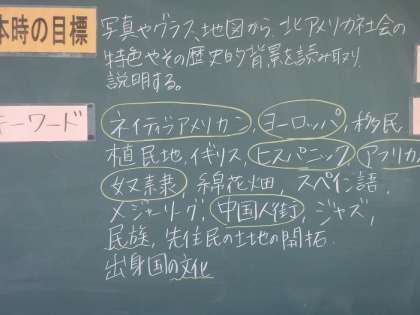 本時の目標
写真やグラフ、地図から、北アメリカ社会の
特色やその歴史的背景を読み取り
説明する。
キーワード
ネイティブアメリカン, ヨーロッパ, 移民
植民地, イギリス, ヒスパニック, アフリカ
奴隷, 綿花畑, スペイン語,
メジャーリーグ, 中国人街, ジャズ,
民族, 先住民の土地の開拓.
出身国の文化